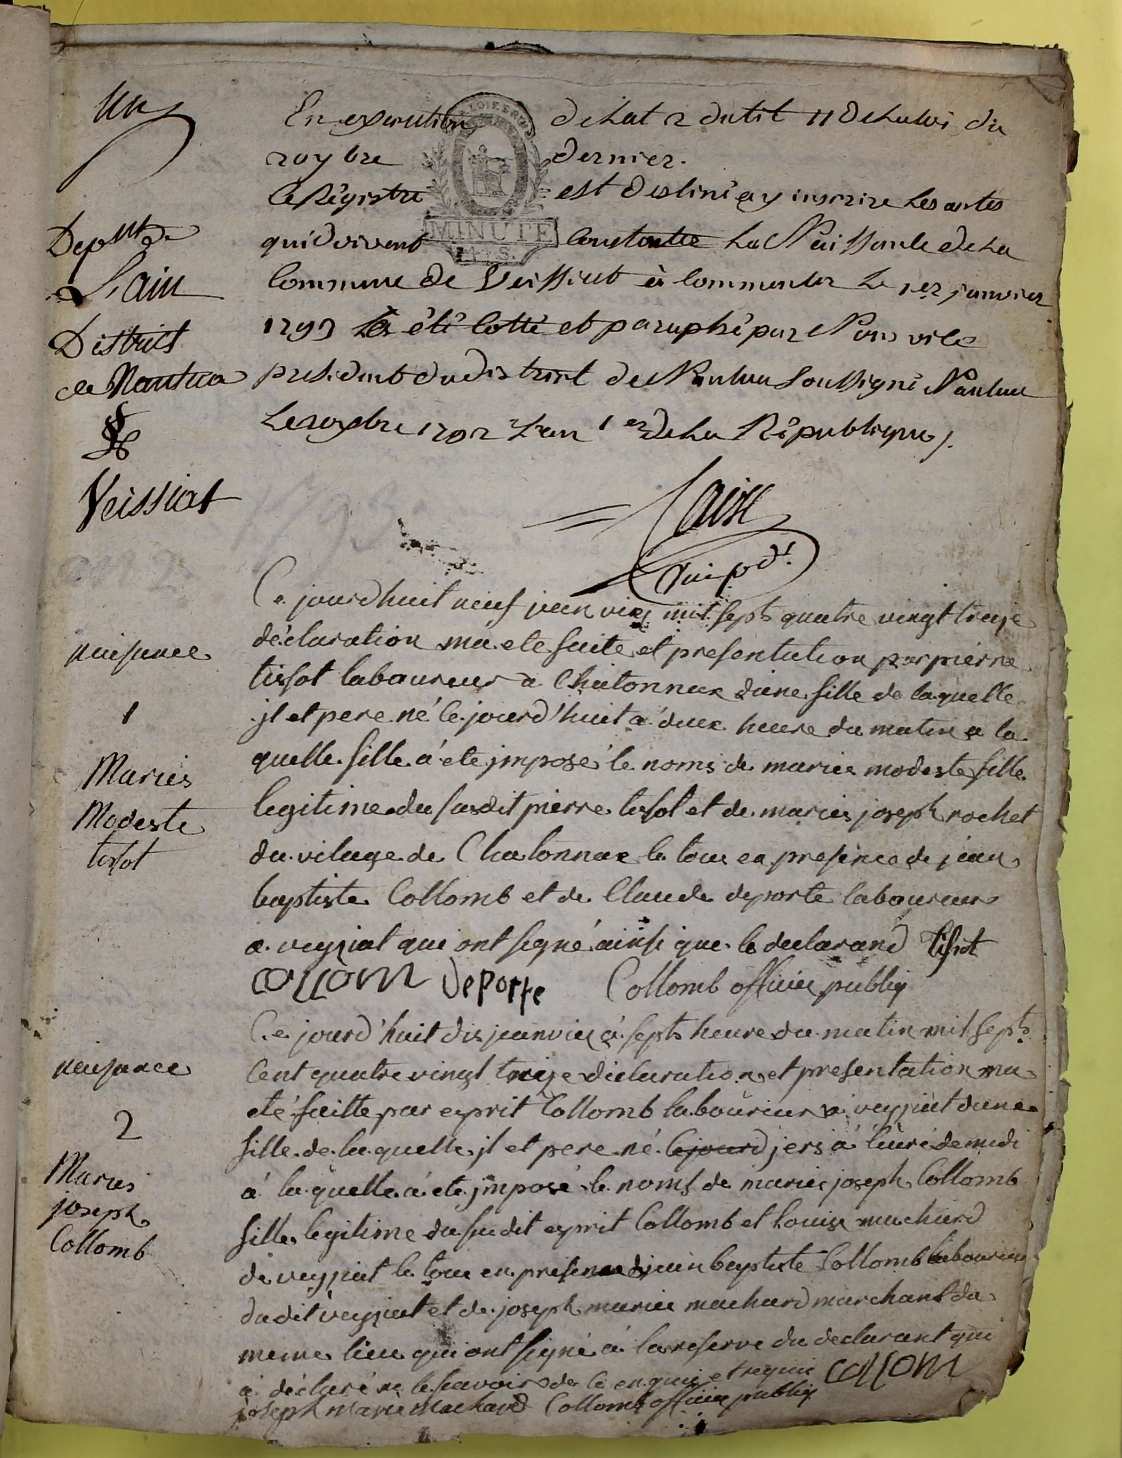 un
En execution de Lart 2 du tit 11 de La Loi du
20 7bre dernier.
Ce Régistre est destiné a y inscrire Les actes
MINUTE
Depmt de
qui doivent Constater La Naissance de La
L'ain
Commune de Veissiat à Commencer Le 1er janvier
District
1793 La été Cotté et paraphé par Nous vice
de Nantua
president du district de Nantua Soussigné Nantua
Le xbre 1792 L'an 1er de La République /.
Veissiat
Ce jourd'huit neuf jeanvier mil sept quatre vingt treize
naisance
déclaration ma ete faite et presentation par pierre
tissot laboureur a Chatonnax d'une fille de laquelle
1
jl et pere né le jourd'huit a deux heure du matin a la
quelle fille à ete jmposé le noms de marie modeste fille
Maries
Modeste
legitime du susdit pierre tissot et de marie joseph rochet
tissot
du vilage de Chatonnax le tout en presence de jean
baptiste Collomb et de Claude deporte laboureurs
a veyziat qui ont signé ainsi que le declarand tissot
COLLOM Deporte Collomb officier publiq
Ce jourd'huit dix jeanvier à sept heure du matin mil sept
naisance
Cent quatre vingt treize déclaration et presentation ma
eté faitte par esprit Collomb laboureur a veyziat d'une
2
fille de laquelle jl et pere né le jourd jers à l'heure de midi
Maries
à laquelle à ete jmposé le noms de marie joseph Collomb
joseph
Collomb
fille legitime du sudit esprit Collomb et Louise machard
de veyziat le tout en presence de jean baptiste Collomb laboureur
dudit veyziat et de joseph marie machard marchant du
meme lieu qui ont signé à la reserve du declarant qui
à déclaré ne le savoir de ce enquis et requis COLLOM
joseph marie Machard Collomb officier publiq